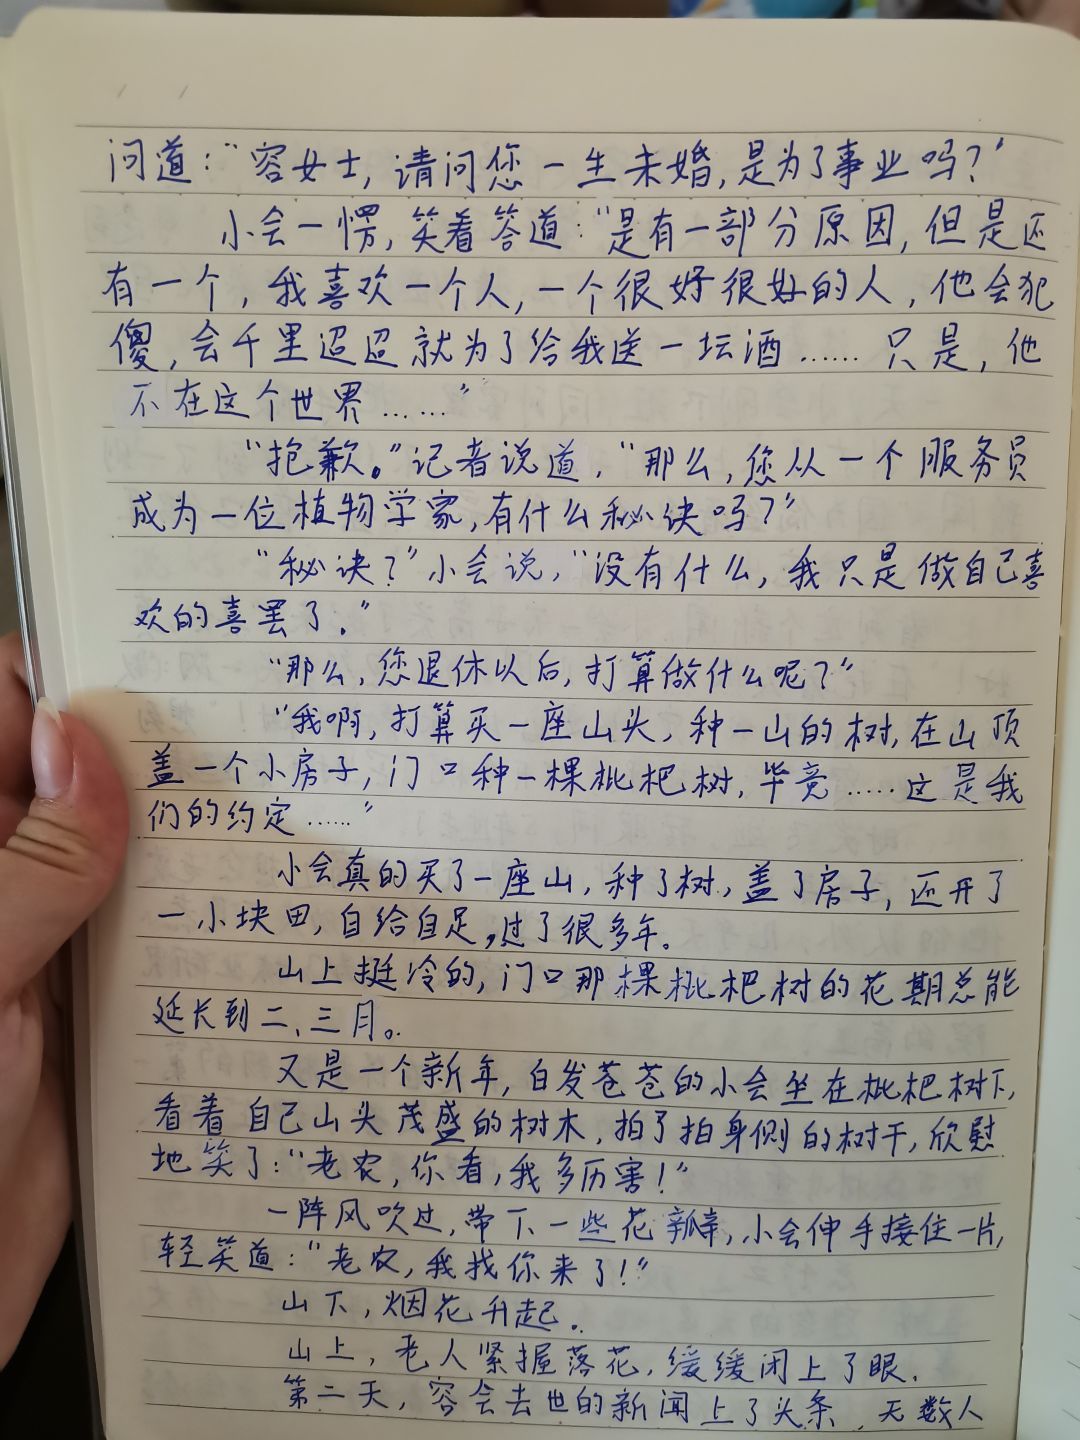 问道：“容女士，请问您一生未婚，是为了事业吗？”
小会一愣，笑着答道：“是有一部分原因，但是还
有一个，我喜欢一个人，一个很好很好的人，他会犯
傻，会千里迢迢就为了给我送一坛酒……只是，他
不在这个世界……”
“抱歉。”记者说道，“那么，您从一个服务员
成为一位植物学家，有什么秘诀吗？”
“秘诀？”小会说，“没有什么，我只是做自己喜
欢的喜罢了。”
“那么，您退休以后，打算做什么呢？”
“我啊，打算买一座山头，种一山的树，在山顶
盖一个小房子，门口种一棵枇杷树，毕竟……这是我
们的约定……”
小会真的买了一座山，种了树，盖了房子，还开了
一小块田，自给自足，过了很多年。
山上挺冷的，门口那棵枇杷树的花期总能
延长到二、三月。
又是一个新年，白发苍苍的小会坐在枇杷树下，
看着自己山头茂盛的树木，拍了拍身侧的树干，欣慰
地笑了：“老农，你看，我多历害！”
一阵风吹过，带下一些花瓣，小会伸手接住一片，
轻笑道：“老农，我找你来了！”
山下，烟花升起。
山上，老人紧握落花，缓缓闭上了眼。
第二天，容会去世的新闻上了头条，无数人